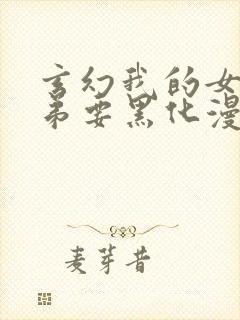 玄幻我的女
弟要黑化漫
麦芽昔